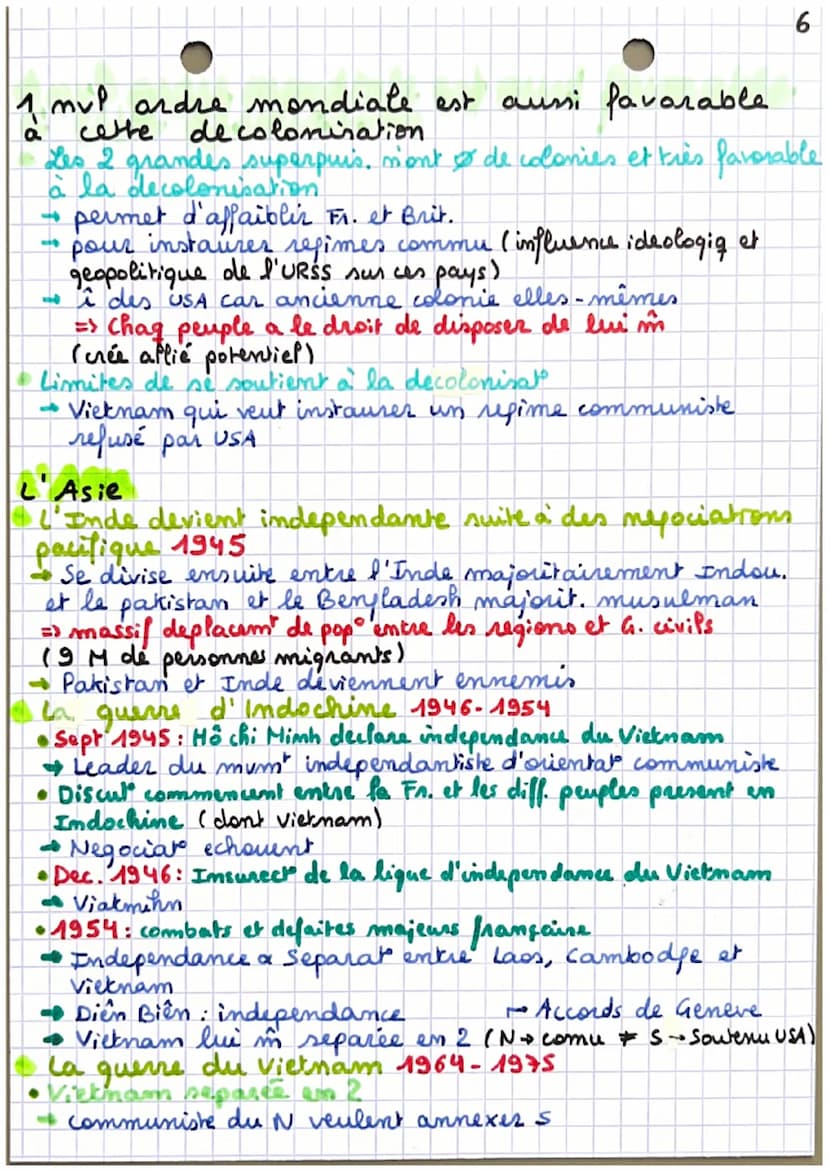 6
1 nvl ordre mondiale est aussi favorable
à cette decolonisation
Les 2 grandes superpuis. n'ont ø de colonies et très favorable
à la decolonisation
→ permet d'affaiblir Fr. et Brit.
→ pour instaurer regimes commu (influence ideologiq et
geopolitique de l'URSS sur ces pays)
→ î des USA car ancienne colonie elles-mêmes
=> Chaq peuple a le droit de disposer de lui m̂
(crée allié potentiel)
• Limites de se soutient à la decolonisat°
→ Vietnam qui veut instaurer un regime communiste
refusé par USA
L'Asie
L'Inde devient independante suite à des negociations
pacifique 1945
→ Se divise ensuite entre l'Inde majoritairement Indou.
et le pakistan et le Bengladesh majorit. musulman
=> massif deplacemt de pop° entre les régions et G. civils
(9 M de personnes migrants)
→ Pakistan et Inde deviennent ennemis
La guerre d'Indochine 1946-1954
• Sept 1945 : Hô chi Minh declare independance du Vietnam
→ Leader du mvmt independantiste d'orientat° communiste
• Discut° commencent entre la Fr. et les diff. peuples present en
Indochine (dont Vietnam)
→ Negociat° echouent
• Dec. 1946 : Insurect° de la ligue d'independance du Vietnam
→ Viatmihn
• 1954 : combats et defaites majeurs française
→ Independance & Separat° entre Laos, Cambodge et
Vietnam
→ Diên Biên : independance → Accords de Geneve
→ Vietnam lui m̂ separée en 2 (N → comu ≠ S → Soutenu USA)
La guerre du Vietnam 1964-1975
• Vietnam separée en 2
→ communiste du N veulent annexer S